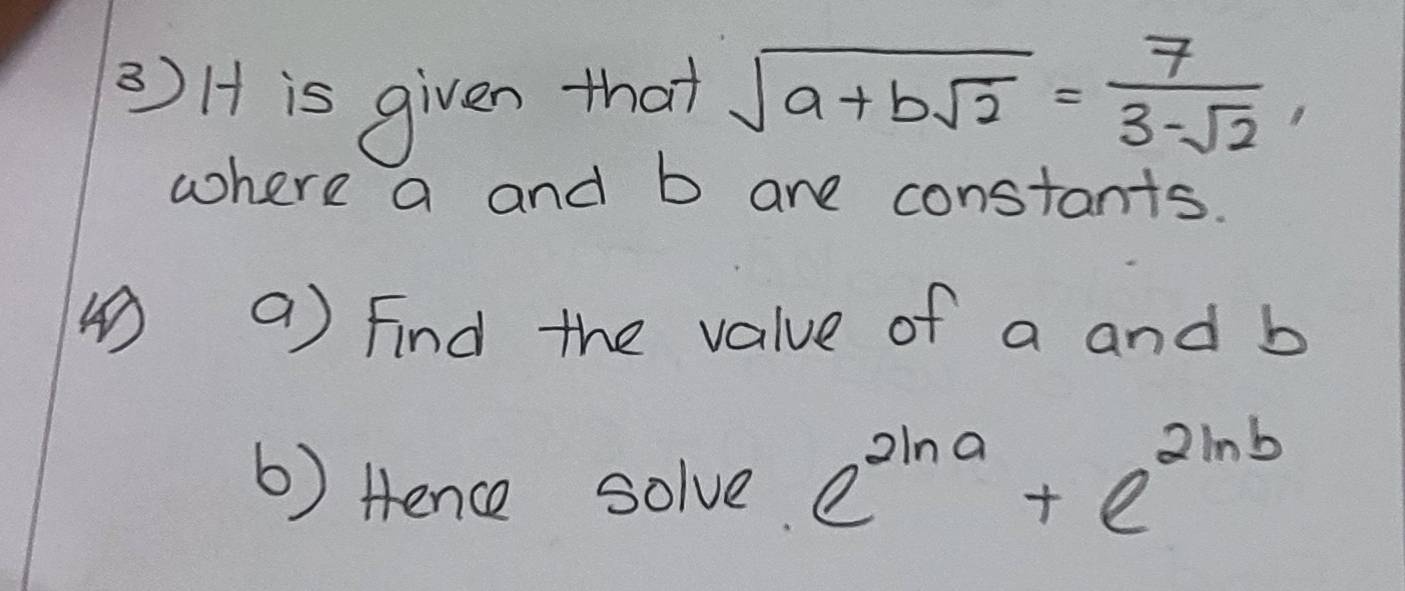 3) It is given that √(a+b√2) = 7/(3-√2),
where a and b are constants.
a) Find the value of a and b
b) Hence solve. e^(2ln a) + e^(2lnb)